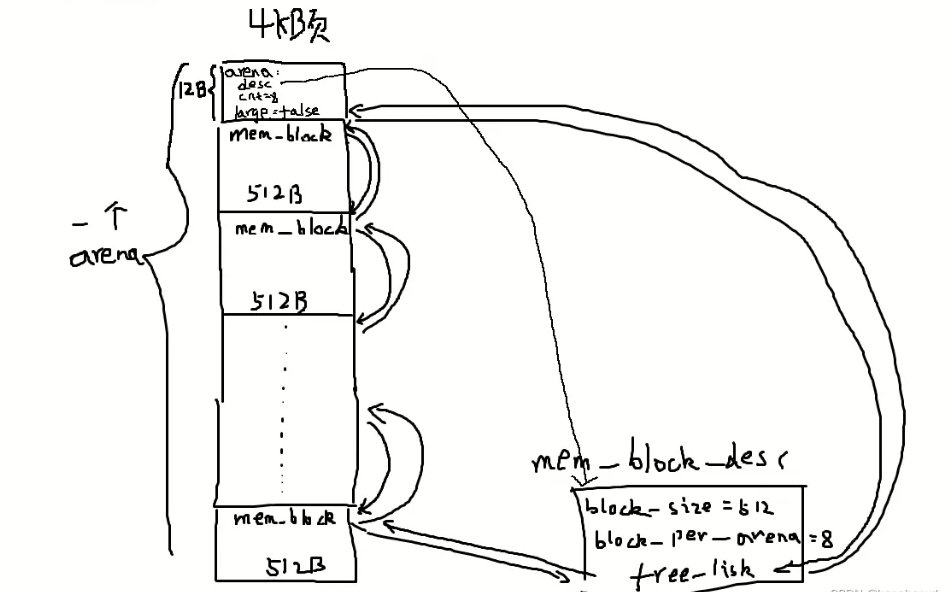 4kB页
arena:
desc
cnt=8
large=false
12B
mem_block
512B
mem_block
512B
一个
arena
mem_block
512B
mem_block_desc
block_size=512
block_per_arena=8
free_lisk